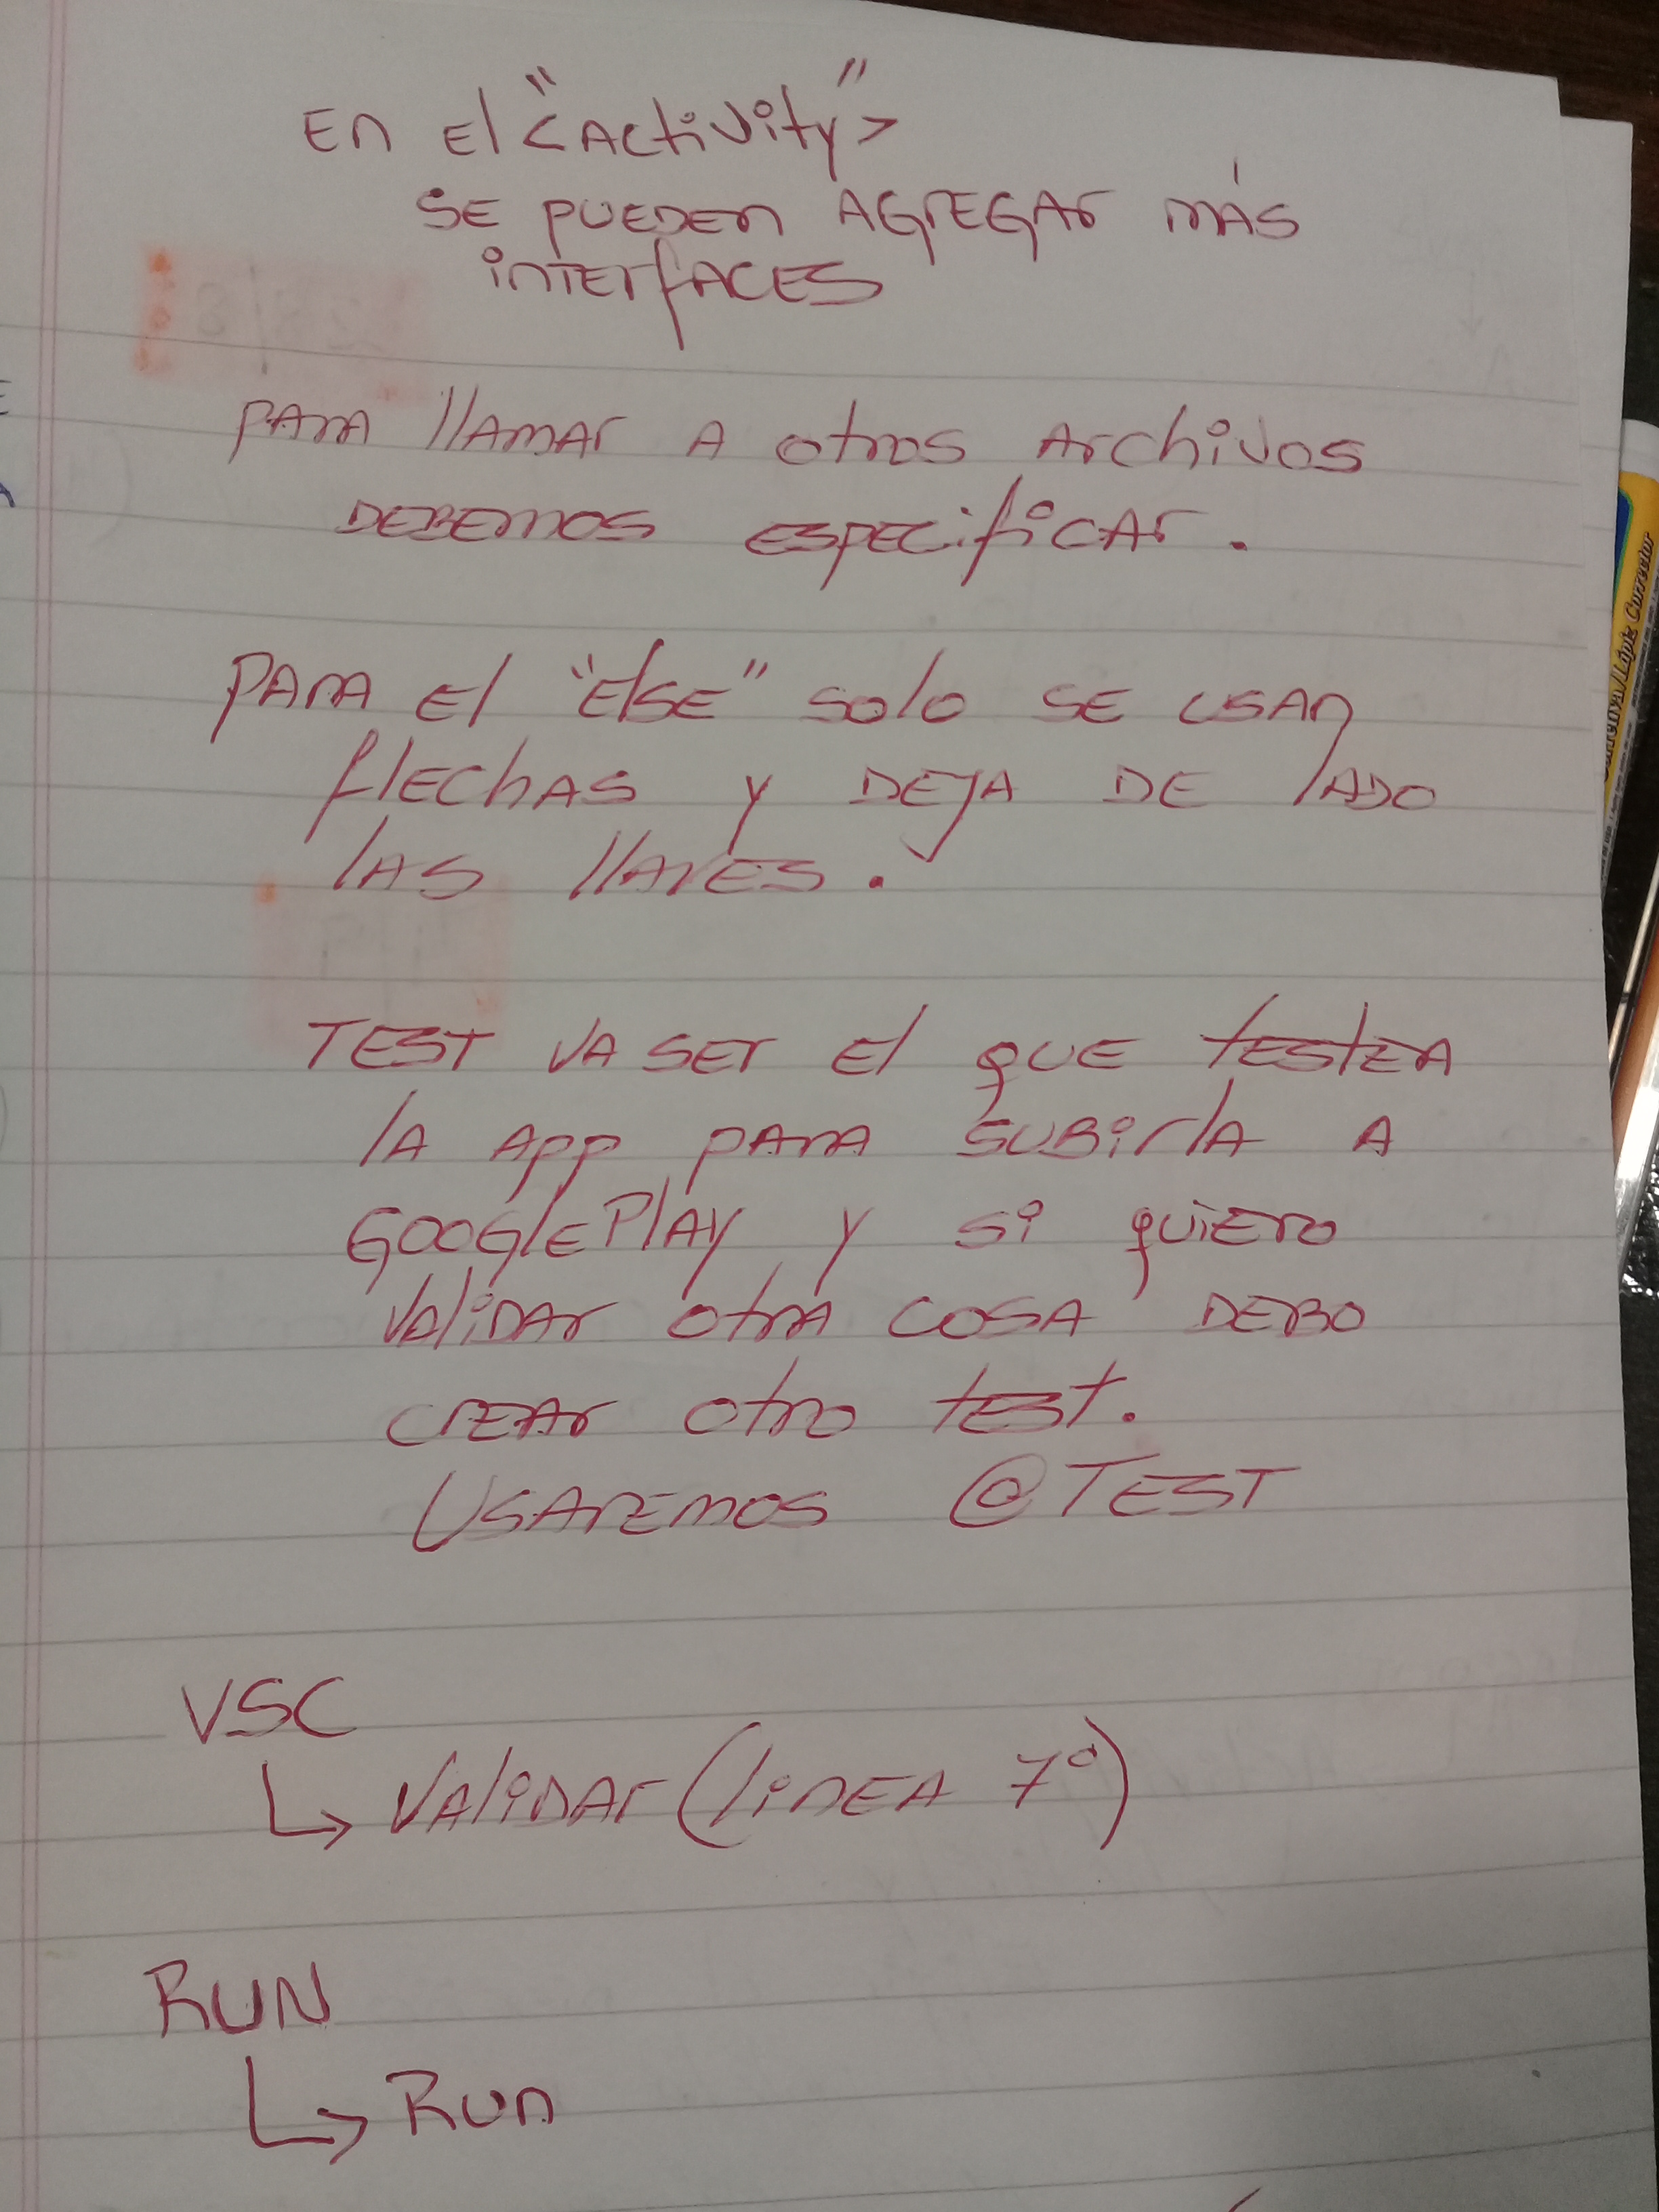 En el "<Activity">
se pueden agregar más
interfaces
para llamar a otros archivos
debemos especificar.
Para el "else" solo se usan
flechas y deja de lado
las llaves.
Test va ser el que testea
la app para subirla a
GooglePlay y si quiero
validar otra cosa debo
crear otro test.
Usaremos @Test
VSC
↳ Validar (linea 7º)
RUN
↳ Run
Lápiz Corrector